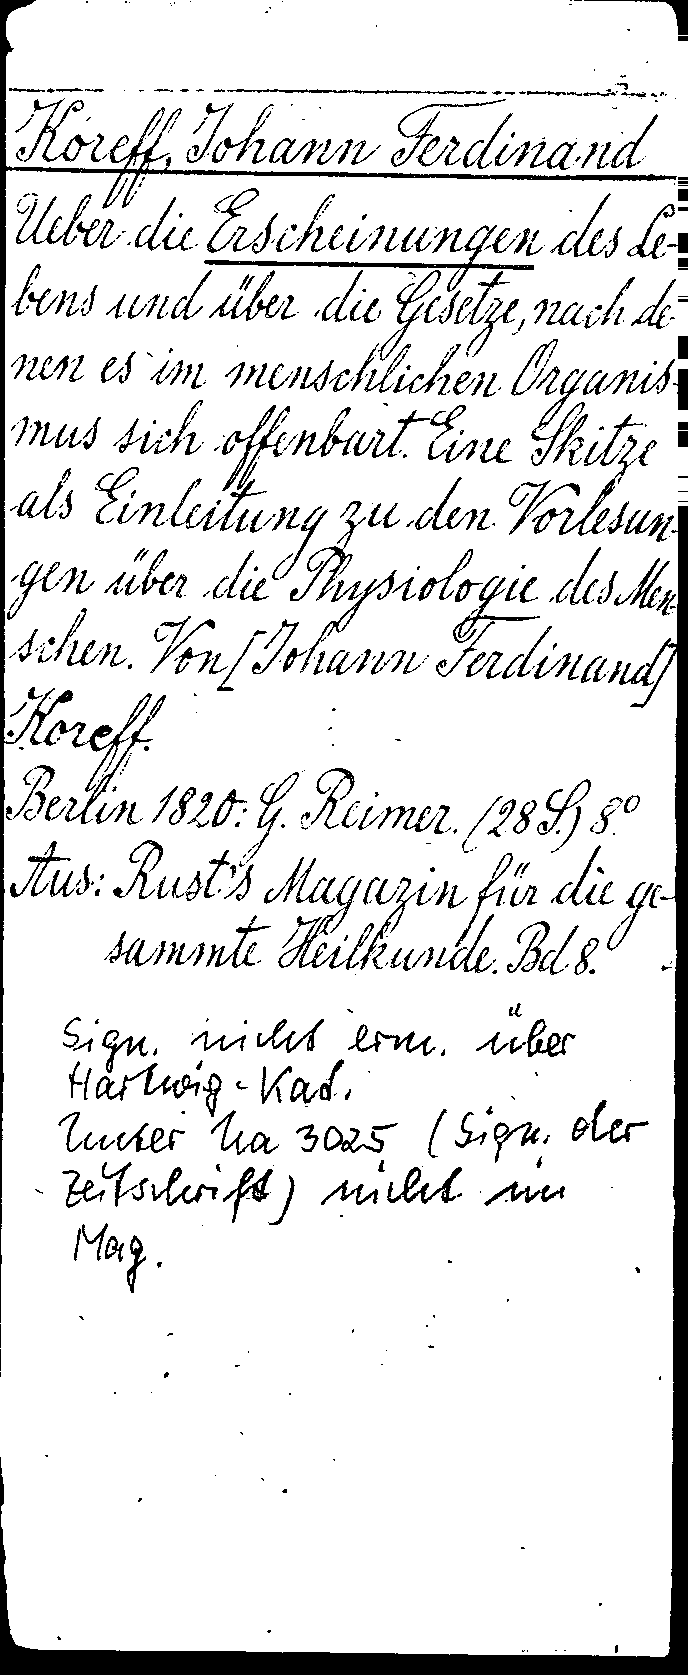 Koreff, Johann Ferdinand
Ueber die Erscheinungen des Le-
bens und über die Gesetze, nach de-
nen es im menschlichen Organis-
mus sich offenbart. Eine Skitze
als Einleitung zu den Vorlesun-
gen über die Physiologie des Men-
schen. Von [Johann Ferdinand]
Koreff.
Berlin 1820: G. Reimer. (28 S.) 8°.
Aus: Rust's Magazin für die ge-
sammte Heilkunde. Bd 8.
Sign. nicht erm. über
Hartwig-Kat.
Unter Na 3025 (Sign. der
Zeitschrift) nicht im
Mag.